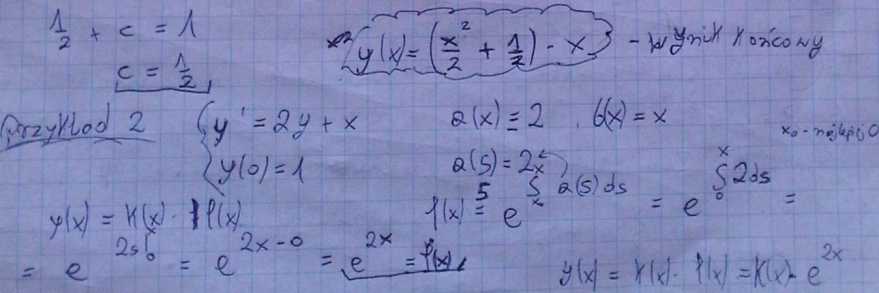 1/2 + c = 1
c = 1/2
y(x) = (x²/2 + 1/2) - x - wynik końcowy
Przykład 2 { y' = 2y + x
y(0) = 1
a(x) = 2, b(x) = x
x₀ - najlepiej 0
a(s) = 2
y(x) = K(x) · f(x)
f(x) = e^{∫ a(s) ds} = e^{∫₀ˣ 2ds} =
= e^{2s|₀} = e^{2x-0} = e^{2x} = f(x)
y(x) = K(x) · f(x) = K(x) · e^{2x}